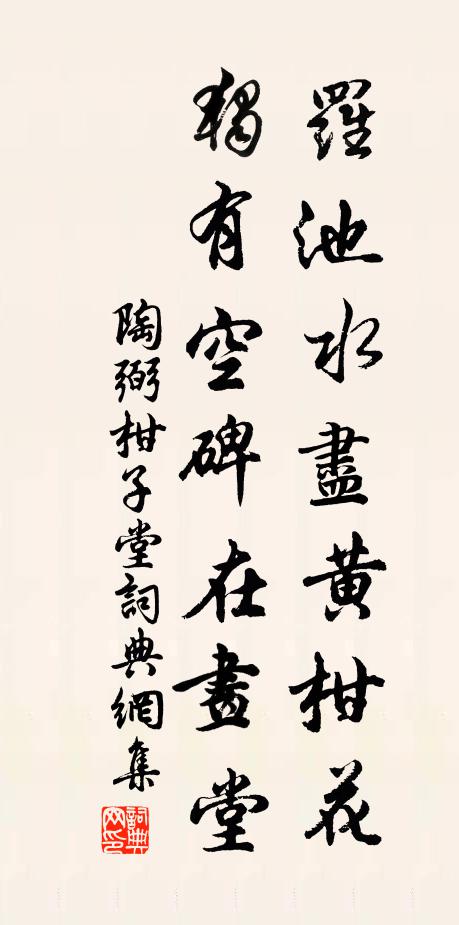 羅池水盡黄柑花
獨有空碑在畫堂
陶弼柑子堂詞典網集
詞典網印